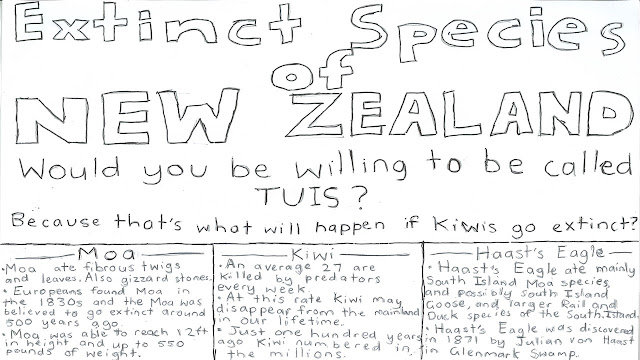 Extinct Species
of
NEW ZEALAND
Would you be willing to be called
TUIS?
Because that's what will happen if Kiwis go extinct?
Moa
• Moa ate fibrous twigs
and leaves. Also gizzard stones.
• Europeans found Moa in
the 1830s and the Moa was
believed to go extinct around
500 years ago.
• Moa was able to reach 12ft
in height and up to 550
pounds of weight.
Kiwi
• An average 27 are
killed by predators
every week.
• At this rate Kiwi may
disappear from the mainland
in our lifetime.
• Just one hundred years
ago Kiwi numbered in
the millions.
Haast's Eagle
• Haast's Eagle ate mainly
South Island Moa species,
and possibly South Island
Goose, and larger Rail and
Duck species of the South Island.
• Haast's Eagle was discovered
in 1871 by Julian von Haast
in Glenmark Swamp.